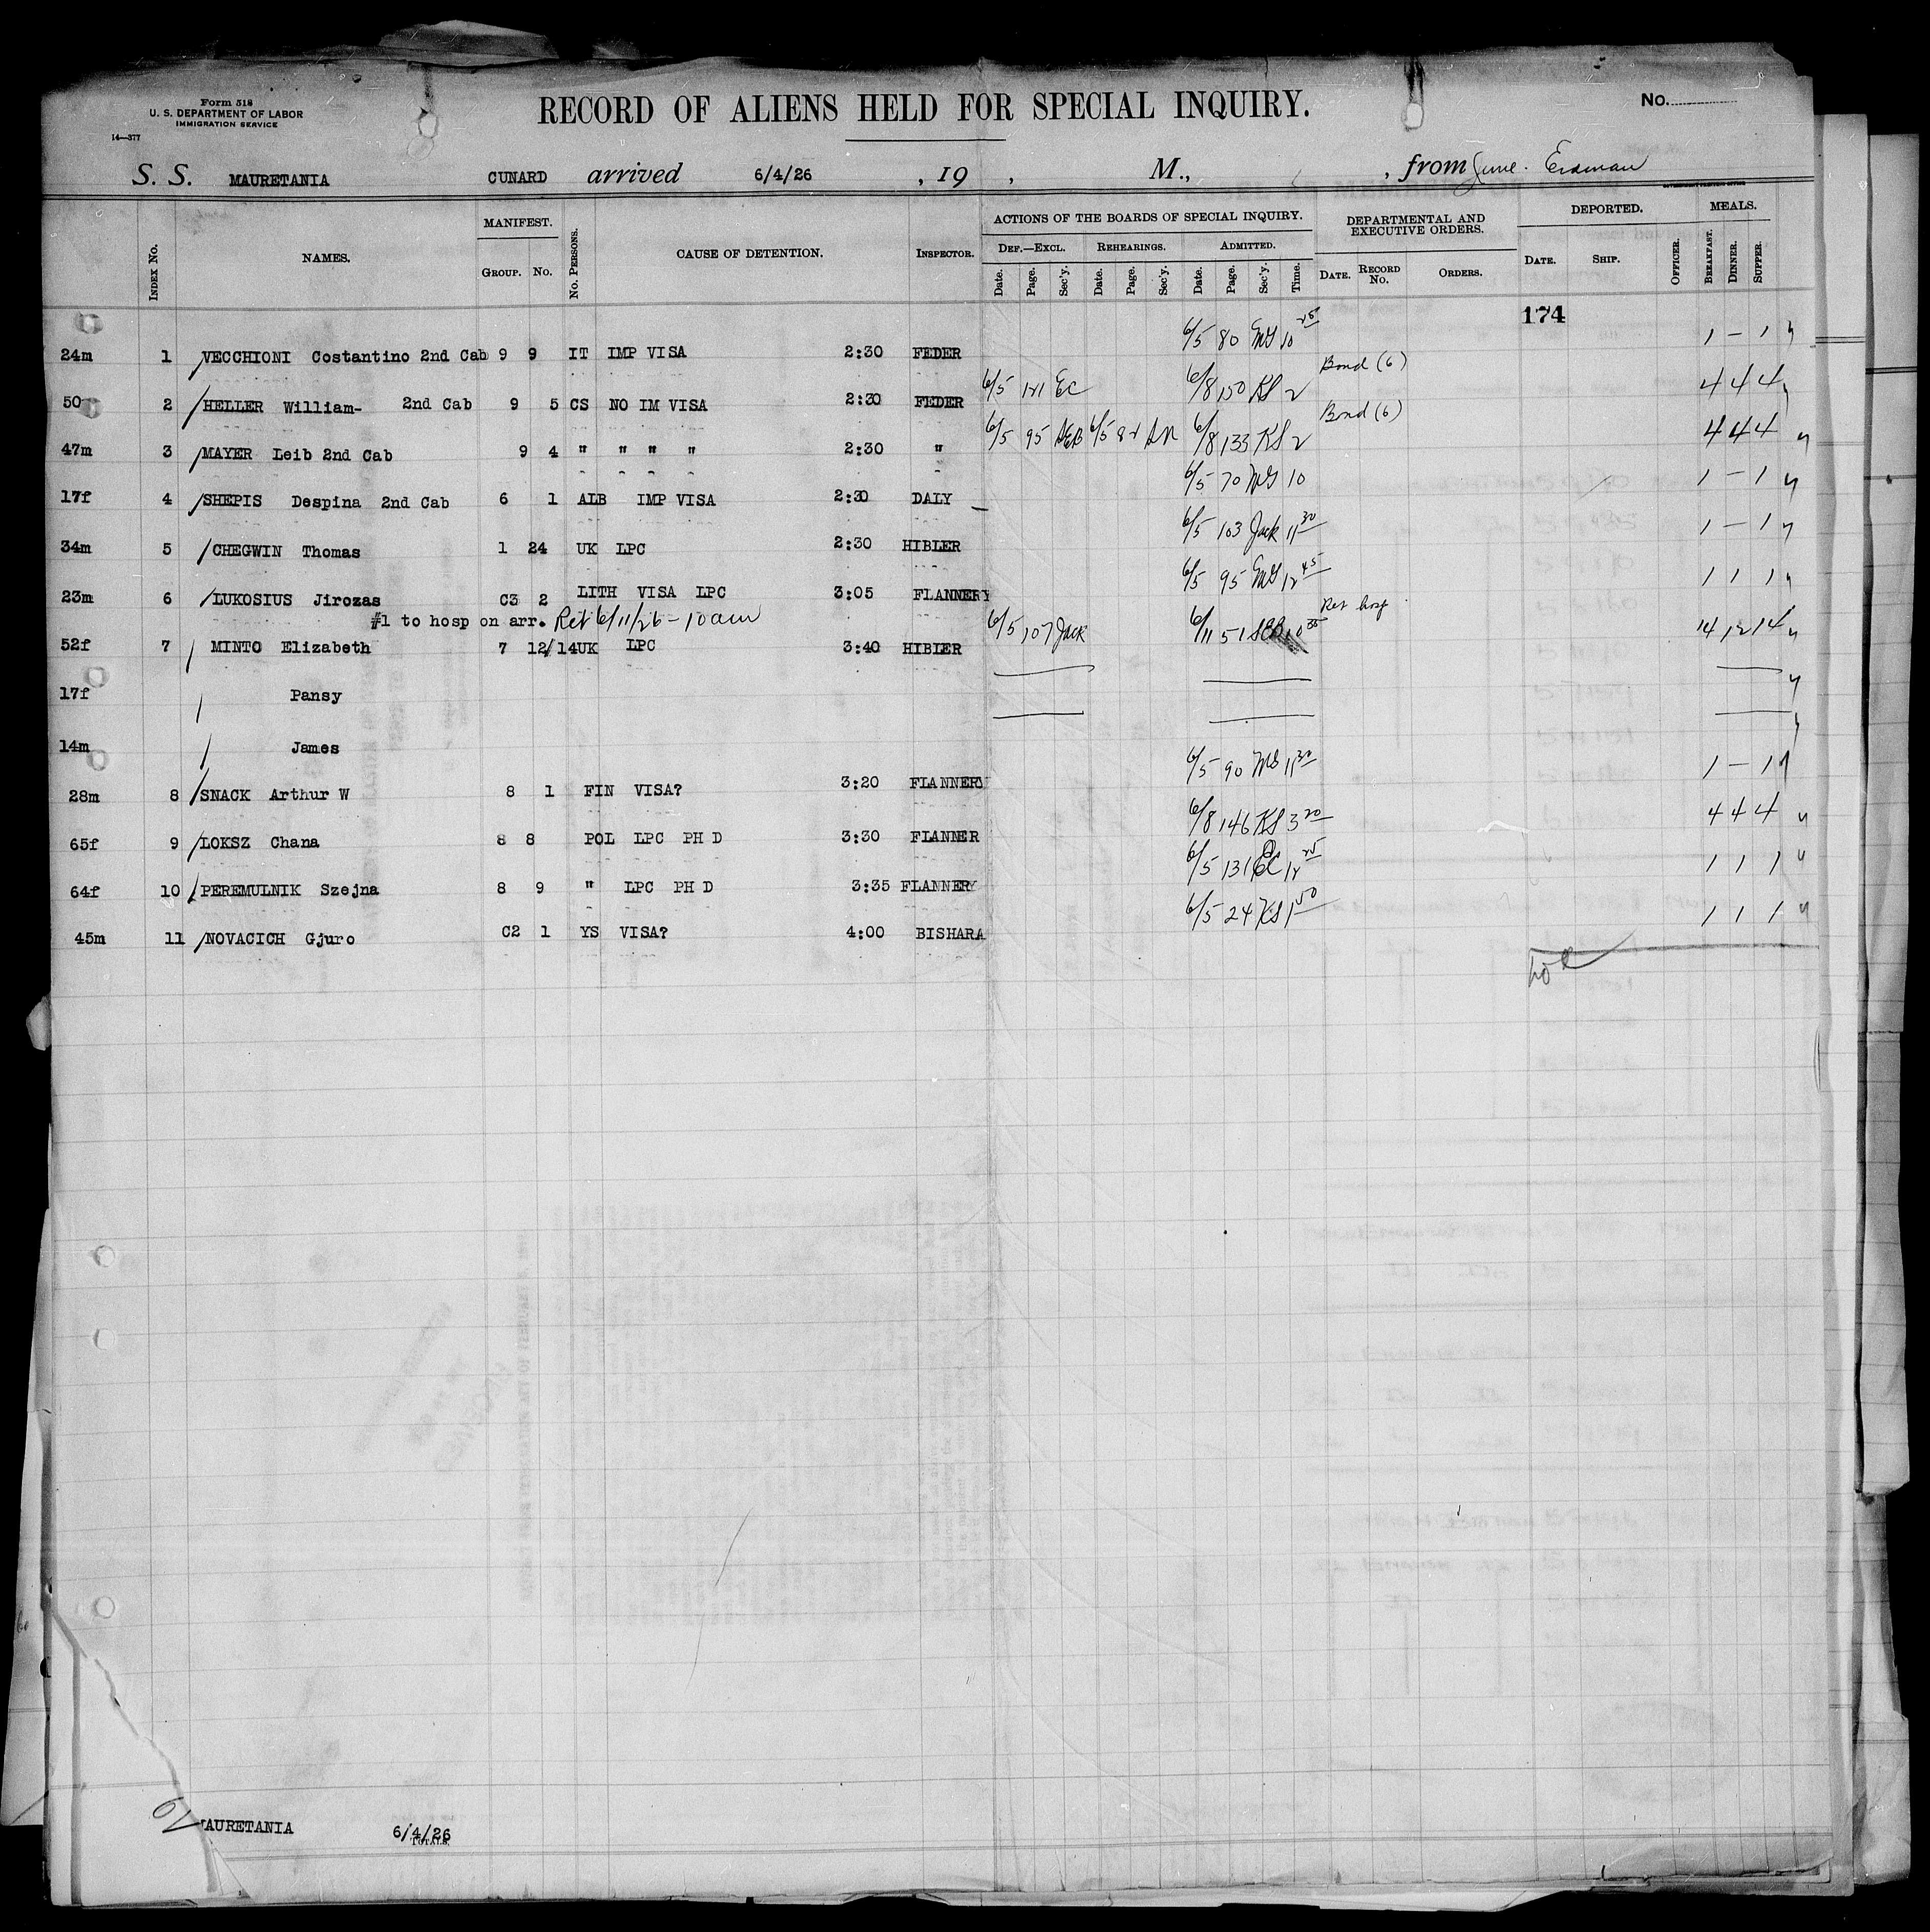 Form 518
U. S. DEPARTMENT OF LABOR
IMMIGRATION SERVICE
14—377
RECORD OF ALIENS HELD FOR SPECIAL INQUIRY.
No.
S. S. MAURETANIA CUNARD arrived 6/4/26 , 19 , M., , from June. Erdman
INDEX No. NAMES. MANIFEST. GROUP. No. No. PERSONS. CAUSE OF DETENTION. INSPECTOR. ACTIONS OF THE BOARDS OF SPECIAL INQUIRY. DEF.—EXCL. Date. Page. Sec'y. REHEARINGS. Date. Page. Sec'y. ADMITTED. Date. Page. Sec'y. Time. DEPARTMENTAL AND EXECUTIVE ORDERS. DATE. RECORD No. ORDERS. DEPORTED. DATE. SHIP. OFFICER. MEALS. BREAKFAST. DINNER. SUPPER.
174
24m 1 VECCHIONI Costantino 2nd Cab 9 9 IT IMP VISA 2:30 FEDER 6/5 80 10 25 1 – 1
50 2 HELLER William- 2nd Cab 9 5 CS NO IM VISA 2:30 FEDER 6/5 121 EC 6/8 150 KS 2 Bond (6) 4 4 4
47m 3 MAYER Leib 2nd Cab 9 4 " " " " 2:30 " 6/5 95 6/5 82 6/8 133 KS 2 Bond (6) 4 4 4
17f 4 SHEPIS Despina 2nd Cab 6 1 ALB IMP VISA 2:30 DALY 6/5 70 10 1 – 1
34m 5 CHEGWIN Thomas 1 24 UK LPC 2:30 HIBLER 6/5 103 Jack 11 30 1 – 1
23m 6 LUKOSIUS Jirozas C3 2 LITH VISA LPC 3:05 FLANNERY 6/5 95 12 45 1 1 1
#1 to hosp on arr. Ret 6/11/26 – 10 am
52f 7 MINTO Elizabeth 7 12/14 UK LPC 3:40 HIBLER 6/5 107 Jack 6/11 51 10 Ret hosp 14 12 14
17f Pansy
14m James
28m 8 SNACK Arthur W 8 1 FIN VISA? 3:20 FLANNERY 6/5 90 11 30 1 – 1
65f 9 LOKSZ Chana 8 8 POL LPC PH D 3:30 FLANNER 6/8 146 KS 3 20 4 4 4
64f 10 PEREMULNIK Szejna 8 9 " LPC PH D 3:35 FLANNERY 6/5 131 EC 1 1 1
45m 11 NOVACICH Gjuro C2 1 YS VISA? 4:00 BISHARA 6/5 24 KS 1 50 1 1 1
MAURETANIA 6/4/26
TOTALS.